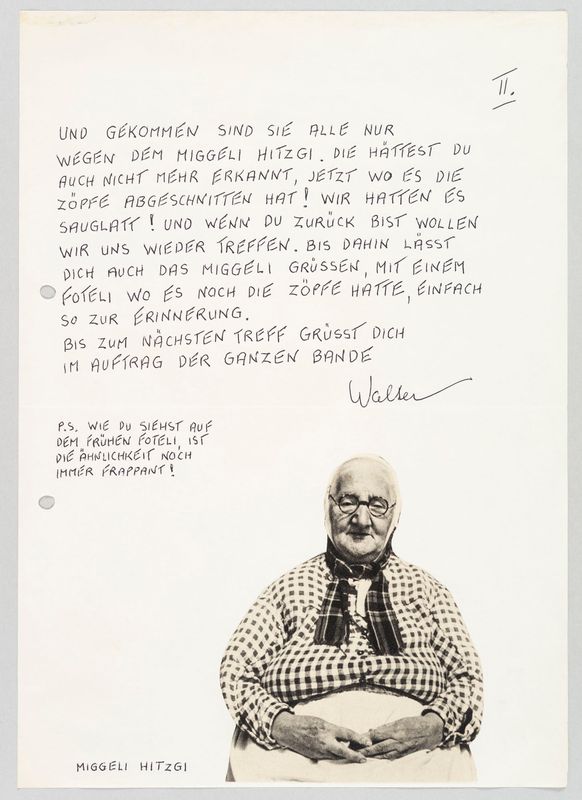 II.
UND GEKOMMEN SIND SIE ALLE NUR
WEGEN DEM MIGGELI HITZGI. DIE HÄTTEST DU
AUCH NICHT MEHR ERKANNT, JETZT WO ES DIE
ZÖPFE ABGESCHNITTEN HAT! WIR HATTEN ES
SAUGLATT! UND WENN DU ZURÜCK BIST WOLLEN
WIR UNS WIEDER TREFFEN. BIS DAHIN LÄSST
DICH AUCH DAS MIGGELI GRÜSSEN, MIT EINEM
FOTELI WO ES NOCH DIE ZÖPFE HATTE, EINFACH
SO ZUR ERINNERUNG.
BIS ZUM NÄCHSTEN TREFF GRÜSST DICH
IM AUFTRAG DER GANZEN BANDE
Walter
P.S. WIE DU SIEHST AUF
DEM FRÜHEN FOTELI, IST
DIE ÄHNLICHKEIT NOCH
IMMER FRAPPANT!
MIGGELI HITZGI